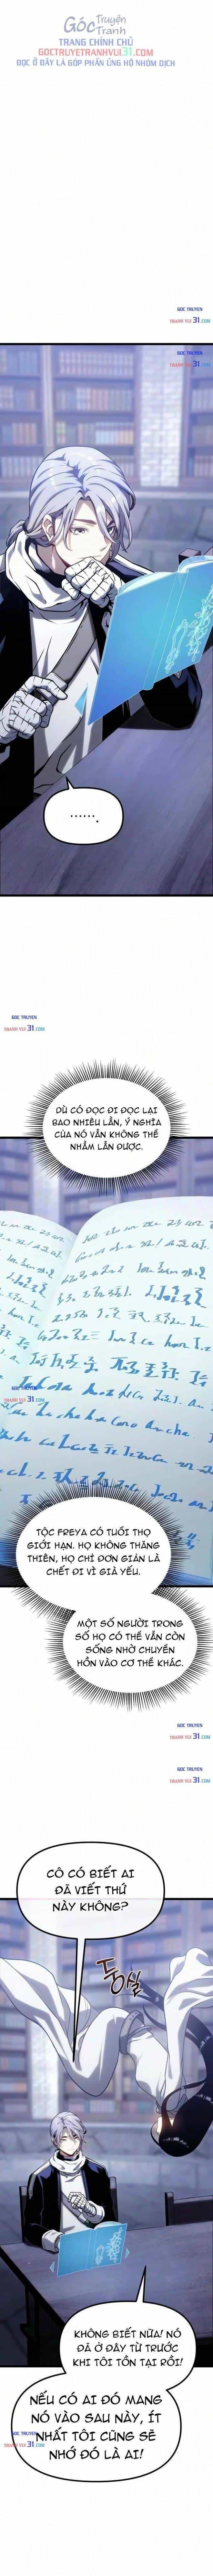 Góc Truyện
Tranh
TRANG CHÍNH CHỦ
GOCTRUYETRANHVUI31.COM
ĐỌC Ở ĐÂY LÀ GÓP PHẦN ỦNG HỘ NHÓM DỊCH
GOC TRUYEN
TRANH VUI 31.COM
GOC TRUYEN
TRANH VUI 31.COM
.......
GOC TRUYEN
TRANH VUI 31.COM
DÙ CÓ ĐỌC ĐI ĐỌC LẠI
BAO NHIÊU LẦN, Ý NGHĨA
CỦA NÓ VẪN KHÔNG THỂ
NHẦM LẪN ĐƯỢC.
GOC TRUYEN
TRANH VUI 31.COM
TỘC FREYA CÓ TUỔI THỌ
GIỚI HẠN. HỌ KHÔNG THĂNG
THIÊN, HỌ CHỈ ĐƠN GIẢN LÀ
CHẾT ĐI VÌ GIÀ YẾU.
MỘT SỐ NGƯỜI TRONG
SỐ HỌ CÓ THỂ VẪN CÒN
SỐNG NHỜ CHUYỂN
HỒN VÀO CƠ THỂ KHÁC.
GOC TRUYEN
TRANH VUI 31.COM
GOC TRUYEN
TRANH VUI 31.COM
CÔ CÓ BIẾT AI
ĐÃ VIẾT THỨ
NÀY KHÔNG?
둥실
KHÔNG BIẾT NỮA! NÓ
ĐÃ Ở ĐÂY TỪ TRƯỚC
KHI TÔI TỒN TẠI RỒI!
NẾU CÓ AI ĐÓ MANG
NÓ VÀO SAU NÀY, ÍT
NHẤT TÔI CŨNG SẼ
NHỚ ĐÓ LÀ AI!
GOC TRUYEN
TRANH VUI 31.COM